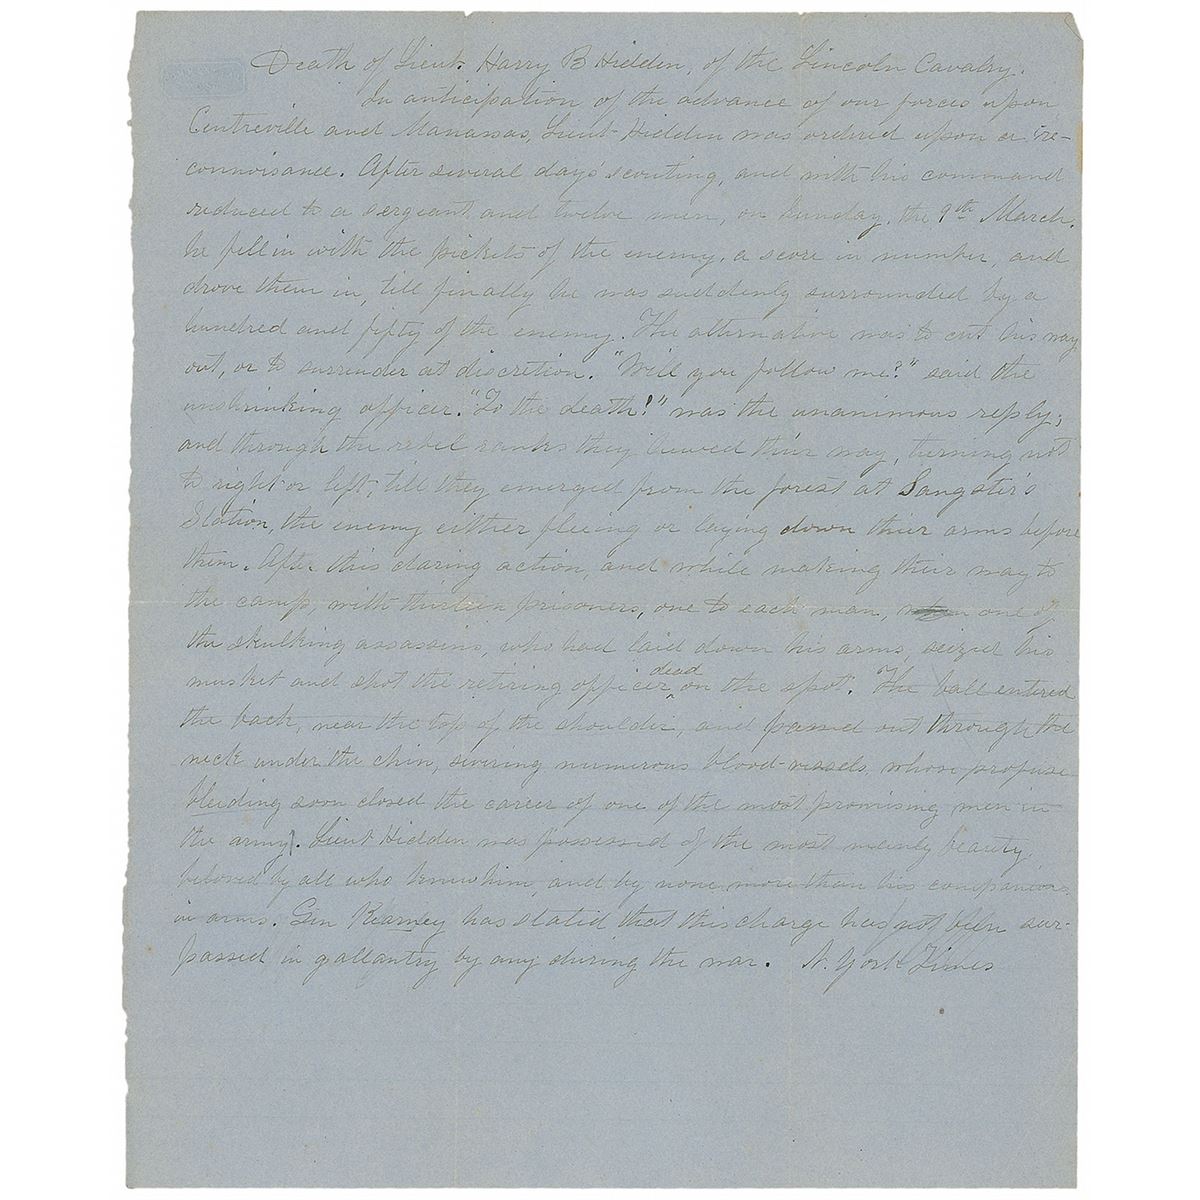 Death of Lieut. Harry B Hidden, of the Lincoln Cavalry.
In anticipation of the advance of our forces upon
Centreville and Manassas, Lieut Hidden was ordered upon a re-
connoisance. After several day's scouting, and with his command
reduced to a sergeant and twelve men, on Sunday, the 9th March,
he fell in with the pickets of the enemy, a score in number, and
drove them in, till finally he was suddenly surrounded by a
hundred and fifty of the enemy. The alternative was to cut his way
out, or to surrender at discretion. "Will you follow me?" said the
unshrinking officer. "To the death!" was the unanimous reply;
and through the rebel ranks they hewed their way, turning not
to right or left, till they emerged from the forest at Sangster's
Station, the enemy either fleeing or laying down thier arms before
them. After this daring action, and while making their way to
the camp, with thirteen prisoners, one to each man, one of
the skulking assassins, who had laid down his arms, seized his
musket and shot the retiring officer dead on the spot. The ball entered
the back, near the top of the shoulder, and passed out through the
neck under the chin, severing numerous blood-vessels, whose profuse
bleeding soon closed the career of one of the most promising men in
the army. Lieut Hidden was possessed of the most manly beauty
beloved by all who knew him, and by none more than his companions
in arms. Gen Kearney has stated that this charge has not been sur-
passed in gallantry by any during the war. N. York Times